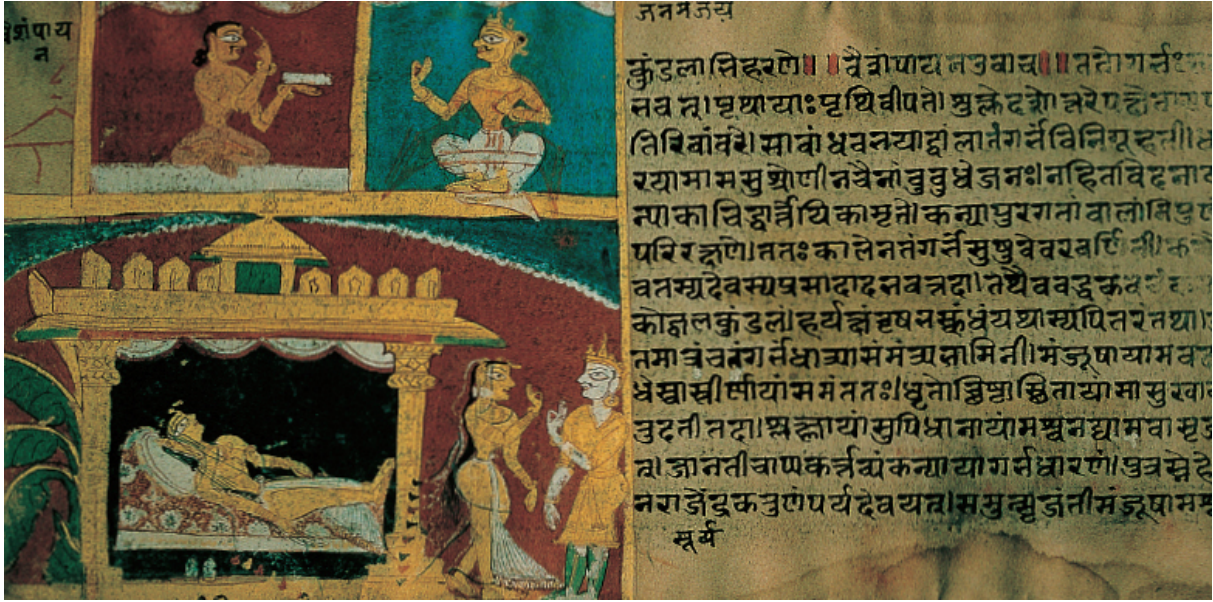 न
जनमजय
कुंडलातिहरणे॥ ॥वैशंपायनउवाच॥ ॥ततोगर्भः
नवत्।पृथायाःपृथिवीपते।शुक्लेदशोत्तरेपक्षे
तिरिवांबरे।साबांधवभयाद्बालातंगर्भंविनिगूहती।
रयामाससुश्रोणीनचैनांबुबुधेजनः।नहितांवेदना
न्याकाचिद्धात्रेयिकामृते।कन्यापुरगतांबालांनिपुण
परिरक्षणे।ततःकालेनतंगर्भंसुषुवेवरवर्णिनी।
वतस्यदेवस्यप्रसादादभवत्तदा।तथैवबद्धकव
कोज्वलकुंडलं।हर्यक्षंवृषभस्कंधंयथास्यपितरंतथा।
तमात्रंचतंगर्भंधात्र्यासंमंत्र्यभामिनी।मंजूषायामवद
धेस्वास्तीर्णायांसमंततः।
रुदतीतदा।श्लक्ष्णायांसुपिधानायांमश्वनद्यामवासृज
त्।जानतीचाप्यकर्तव्यंकन्यायागर्भधारणं।पुत्रस्नेहे
नराजेंद्रकरुणंपर्यदेवयत्।समुत्सृजंतीमंजूषामश्व
सूर्य